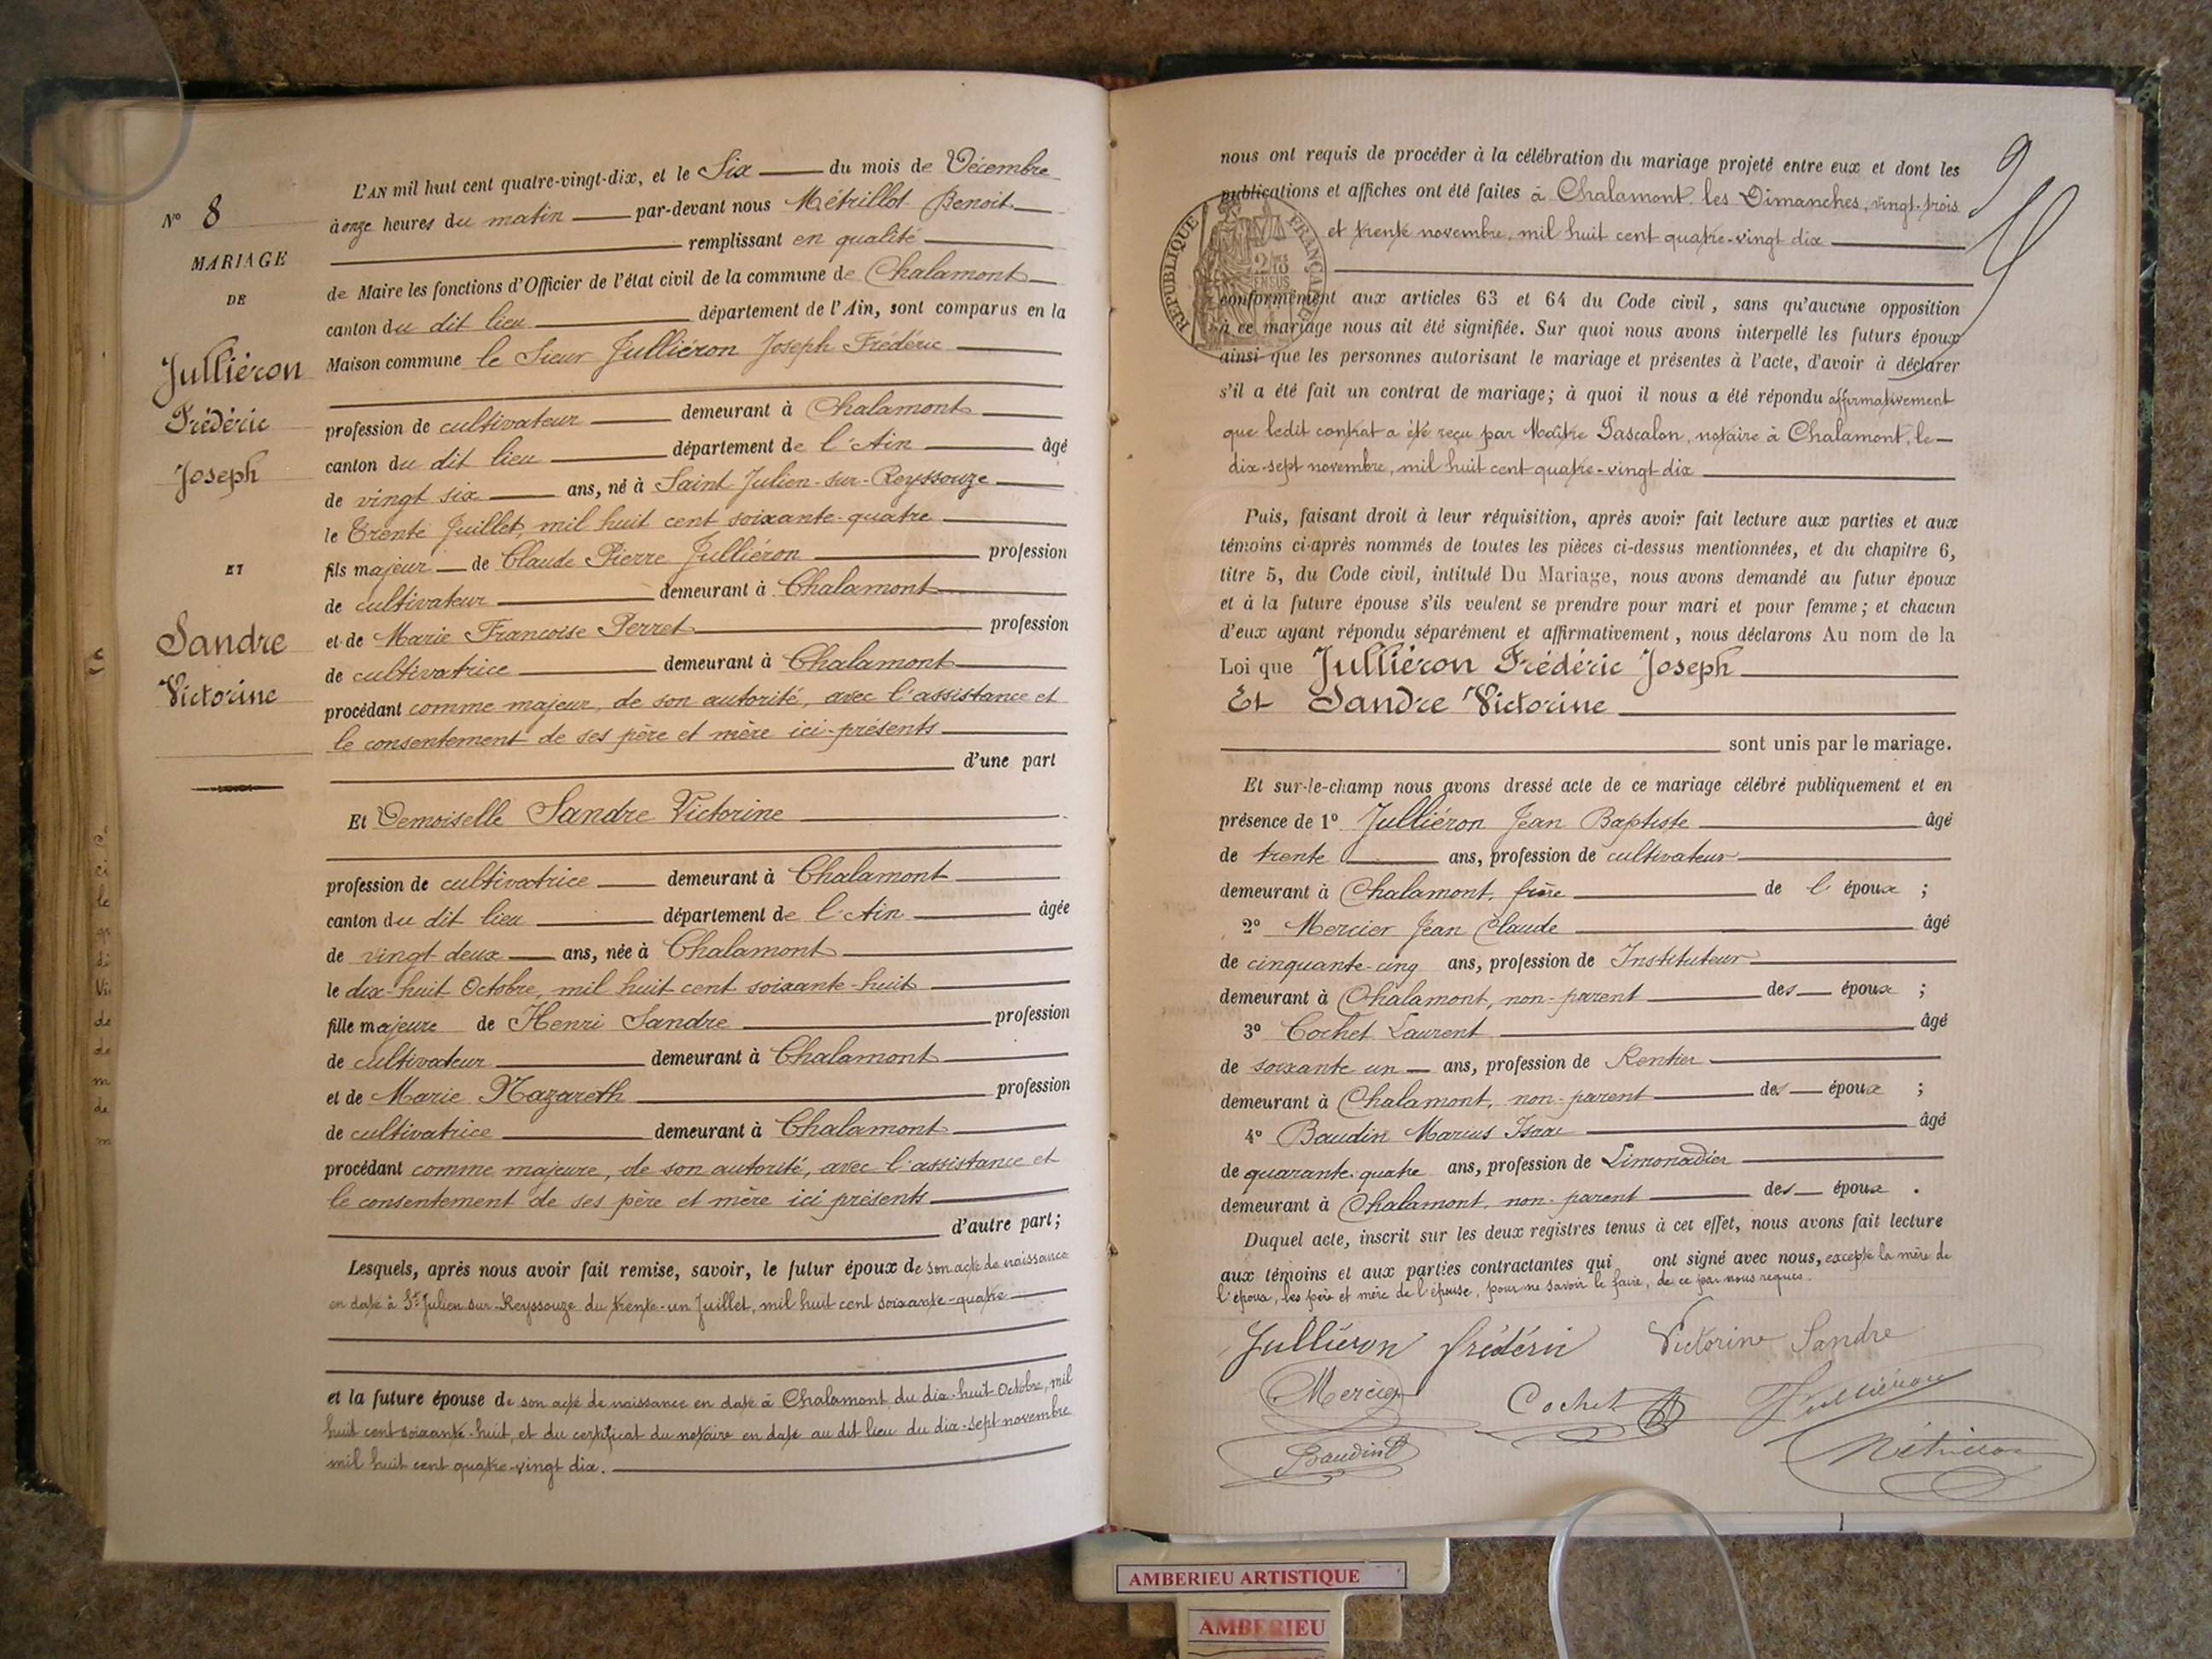 N° 8
MARIAGE
DE
Julliéron
Frédéric
Joseph
ET
Sandre
Victorine
L'AN mil huit cent quatre-vingt-dix, et le Six du mois de Décembre
à onze heures du matin par-devant nous Métrillot Benoit
remplissant en qualité
de Maire les fonctions d'Officier de l'état civil de la commune de Chalamont
canton du dit lieu département de l'Ain, sont comparus en la
Maison commune le Sieur Julliéron Joseph Frédéric
profession de cultivateur demeurant à Chalamont
canton du dit lieu département de l'Ain âgé
de vingt six ans, né à Saint Julien-sur-Reyssouze
le Trente Juillet, mil huit cent soixante-quatre
fils majeur de Claude Pierre Julliéron profession
de cultivateur demeurant à Chalamont
et de Marie Francoise Perret profession
de cultivatrice demeurant à Chalamont
procédant comme majeur, de son autorité, avec l'assistance et
le consentement de ses père et mère ici-présents
d'une part
Et Demoiselle Sandre Victorine
profession de cultivatrice demeurant à Chalamont
canton du dit lieu département de l'Ain âgée
de vingt deux ans, née à Chalamont
le dix-huit Octobre, mil huit cent soixante-huit
fille majeure de Henri Sandre profession
de cultivateur demeurant à Chalamont
et de Marie Nazareth profession
de cultivatrice demeurant à Chalamont
procédant comme majeure, de son autorité, avec l'assistance et
le consentement de ses père et mère ici présents
d'autre part;
Lesquels, après nous avoir fait remise, savoir, le futur époux de son acte de naissance
en date à St Julien-sur-Reyssouze du trente-un Juillet, mil huit cent soixante-quatre
et la future épouse de son acte de naissance en date à Chalamont du dix-huit Octobre, mil
huit cent soixante-huit, et du certificat du notaire en date au dit lieu du dix-sept novembre
mil huit cent quatre-vingt dix.
9
nous ont requis de procéder à la célébration du mariage projeté entre eux et dont les
publications et affiches ont été faites à Chalamont les Dimanches, vingt-trois
et trente novembre, mil huit cent quatre-vingt dix
RÉPUBLIQUE FRANÇAISE
conformément aux articles 63 et 64 du Code civil, sans qu'aucune opposition
à ce mariage nous ait été signifiée. Sur quoi nous avons interpellé les futurs époux
ainsi que les personnes autorisant le mariage et présentes à l'acte, d'avoir à déclarer
s'il a été fait un contrat de mariage; à quoi il nous a été répondu affirmativement
que ledit contrat a été reçu par Maître Pascalon, notaire à Chalamont, le
dix-sept novembre, mil huit cent quatre-vingt dix
Puis, faisant droit à leur réquisition, après avoir fait lecture aux parties et aux
témoins ci-après nommés de toutes les pièces ci-dessus mentionnées, et du chapitre 6,
titre 5, du Code civil, intitulé Du Mariage, nous avons demandé au futur époux
et à la future épouse s'ils veulent se prendre pour mari et pour femme; et chacun
d'eux ayant répondu séparément et affirmativement, nous déclarons Au nom de la
Loi que Julliéron Frédéric Joseph
Et Sandre Victorine
sont unis par le mariage.
Et sur-le-champ nous avons dressé acte de ce mariage célébré publiquement et en
présence de 1° Julliéron Jean Baptiste âgé
de trente ans, profession de cultivateur
demeurant à Chalamont, frère de l'époux ;
2° Mercier Jean Claude âgé
de cinquante-cinq ans, profession de Instituteur
demeurant à Chalamont, non-parent des époux ;
3° Cochet Laurent âgé
de soixante un ans, profession de Rentier
demeurant à Chalamont, non-parent des époux ;
4° Baudin Marius Isaac âgé
de quarante-quatre ans, profession de Limonadier
demeurant à Chalamont, non-parent des époux .
Duquel acte, inscrit sur les deux registres tenus à cet effet, nous avons fait lecture
aux témoins et aux parties contractantes qui ont signé avec nous, excepté la mère de
l'époux, les père et mère de l'épouse, pour ne savoir le faire, de ce par nous requis.
Julliéron frédéric Victorine Sandre
Mercier Cochet Julliéron
Baudin Métrillot
AMBERIEU ARTISTIQUE
AMBERIEU